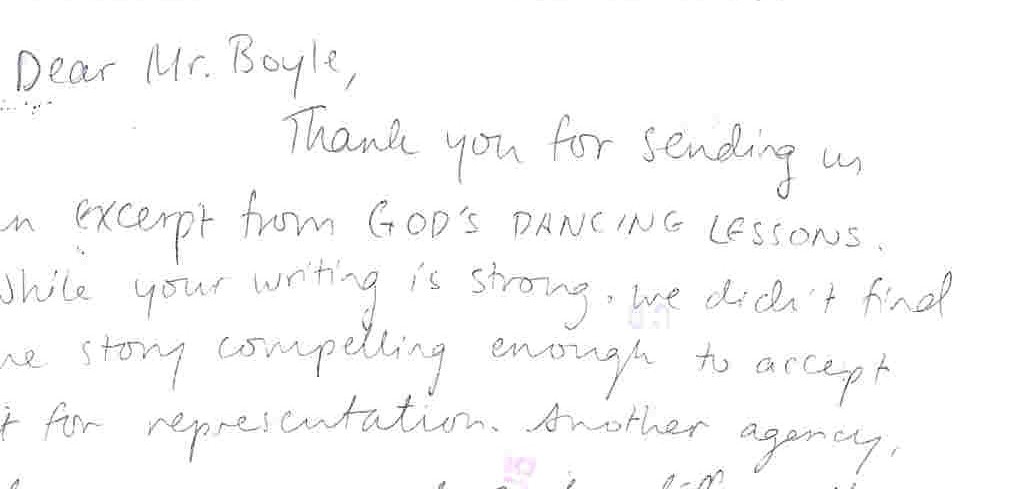 Dear Mr. Boyle,
Thank you for sending us
n excerpt from GOD'S DANCING LESSONS.
While your writing is strong, we didn't find
he story compelling enough to accept
t for representation. Another agency,